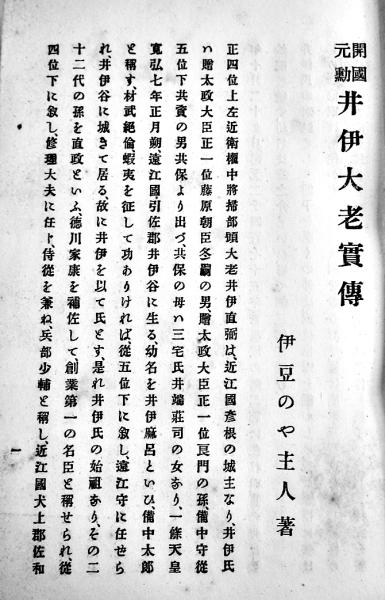 開國元勳 井伊大老實傳
伊豆のや主人著
正四位上左近衛權中將掃部頭大老井伊直弼は、近江國彦根の城主なり、井伊氏
ハ贈太政大臣正一位藤原朝臣冬嗣の男贈太政大臣正一位良門の孫、備中守從
五位下共資の男共保より出づ、共保の母ハ三宅氏井端莊司の女あり、一條天皇
寛弘七年正月朔、遠江國引佐郡井伊谷に生る、幼名を井伊麻呂といひ、備中太郎
と稱す、材武絶倫、蝦夷を征して功ありけれバ、從五位下に叙し、遠江守に任せら
れ井伊谷に城きて居る、故に井伊を以て氏とす、是れ井伊氏の始祖あり、その二
十二代の孫を直政といふ、德川家康を補佐して、創業第一の名臣と稱せられ、從
四位下に叙し、修理大夫に任ト、侍從を兼ね、兵部少輔と稱し、近江國犬上郡佐和
一